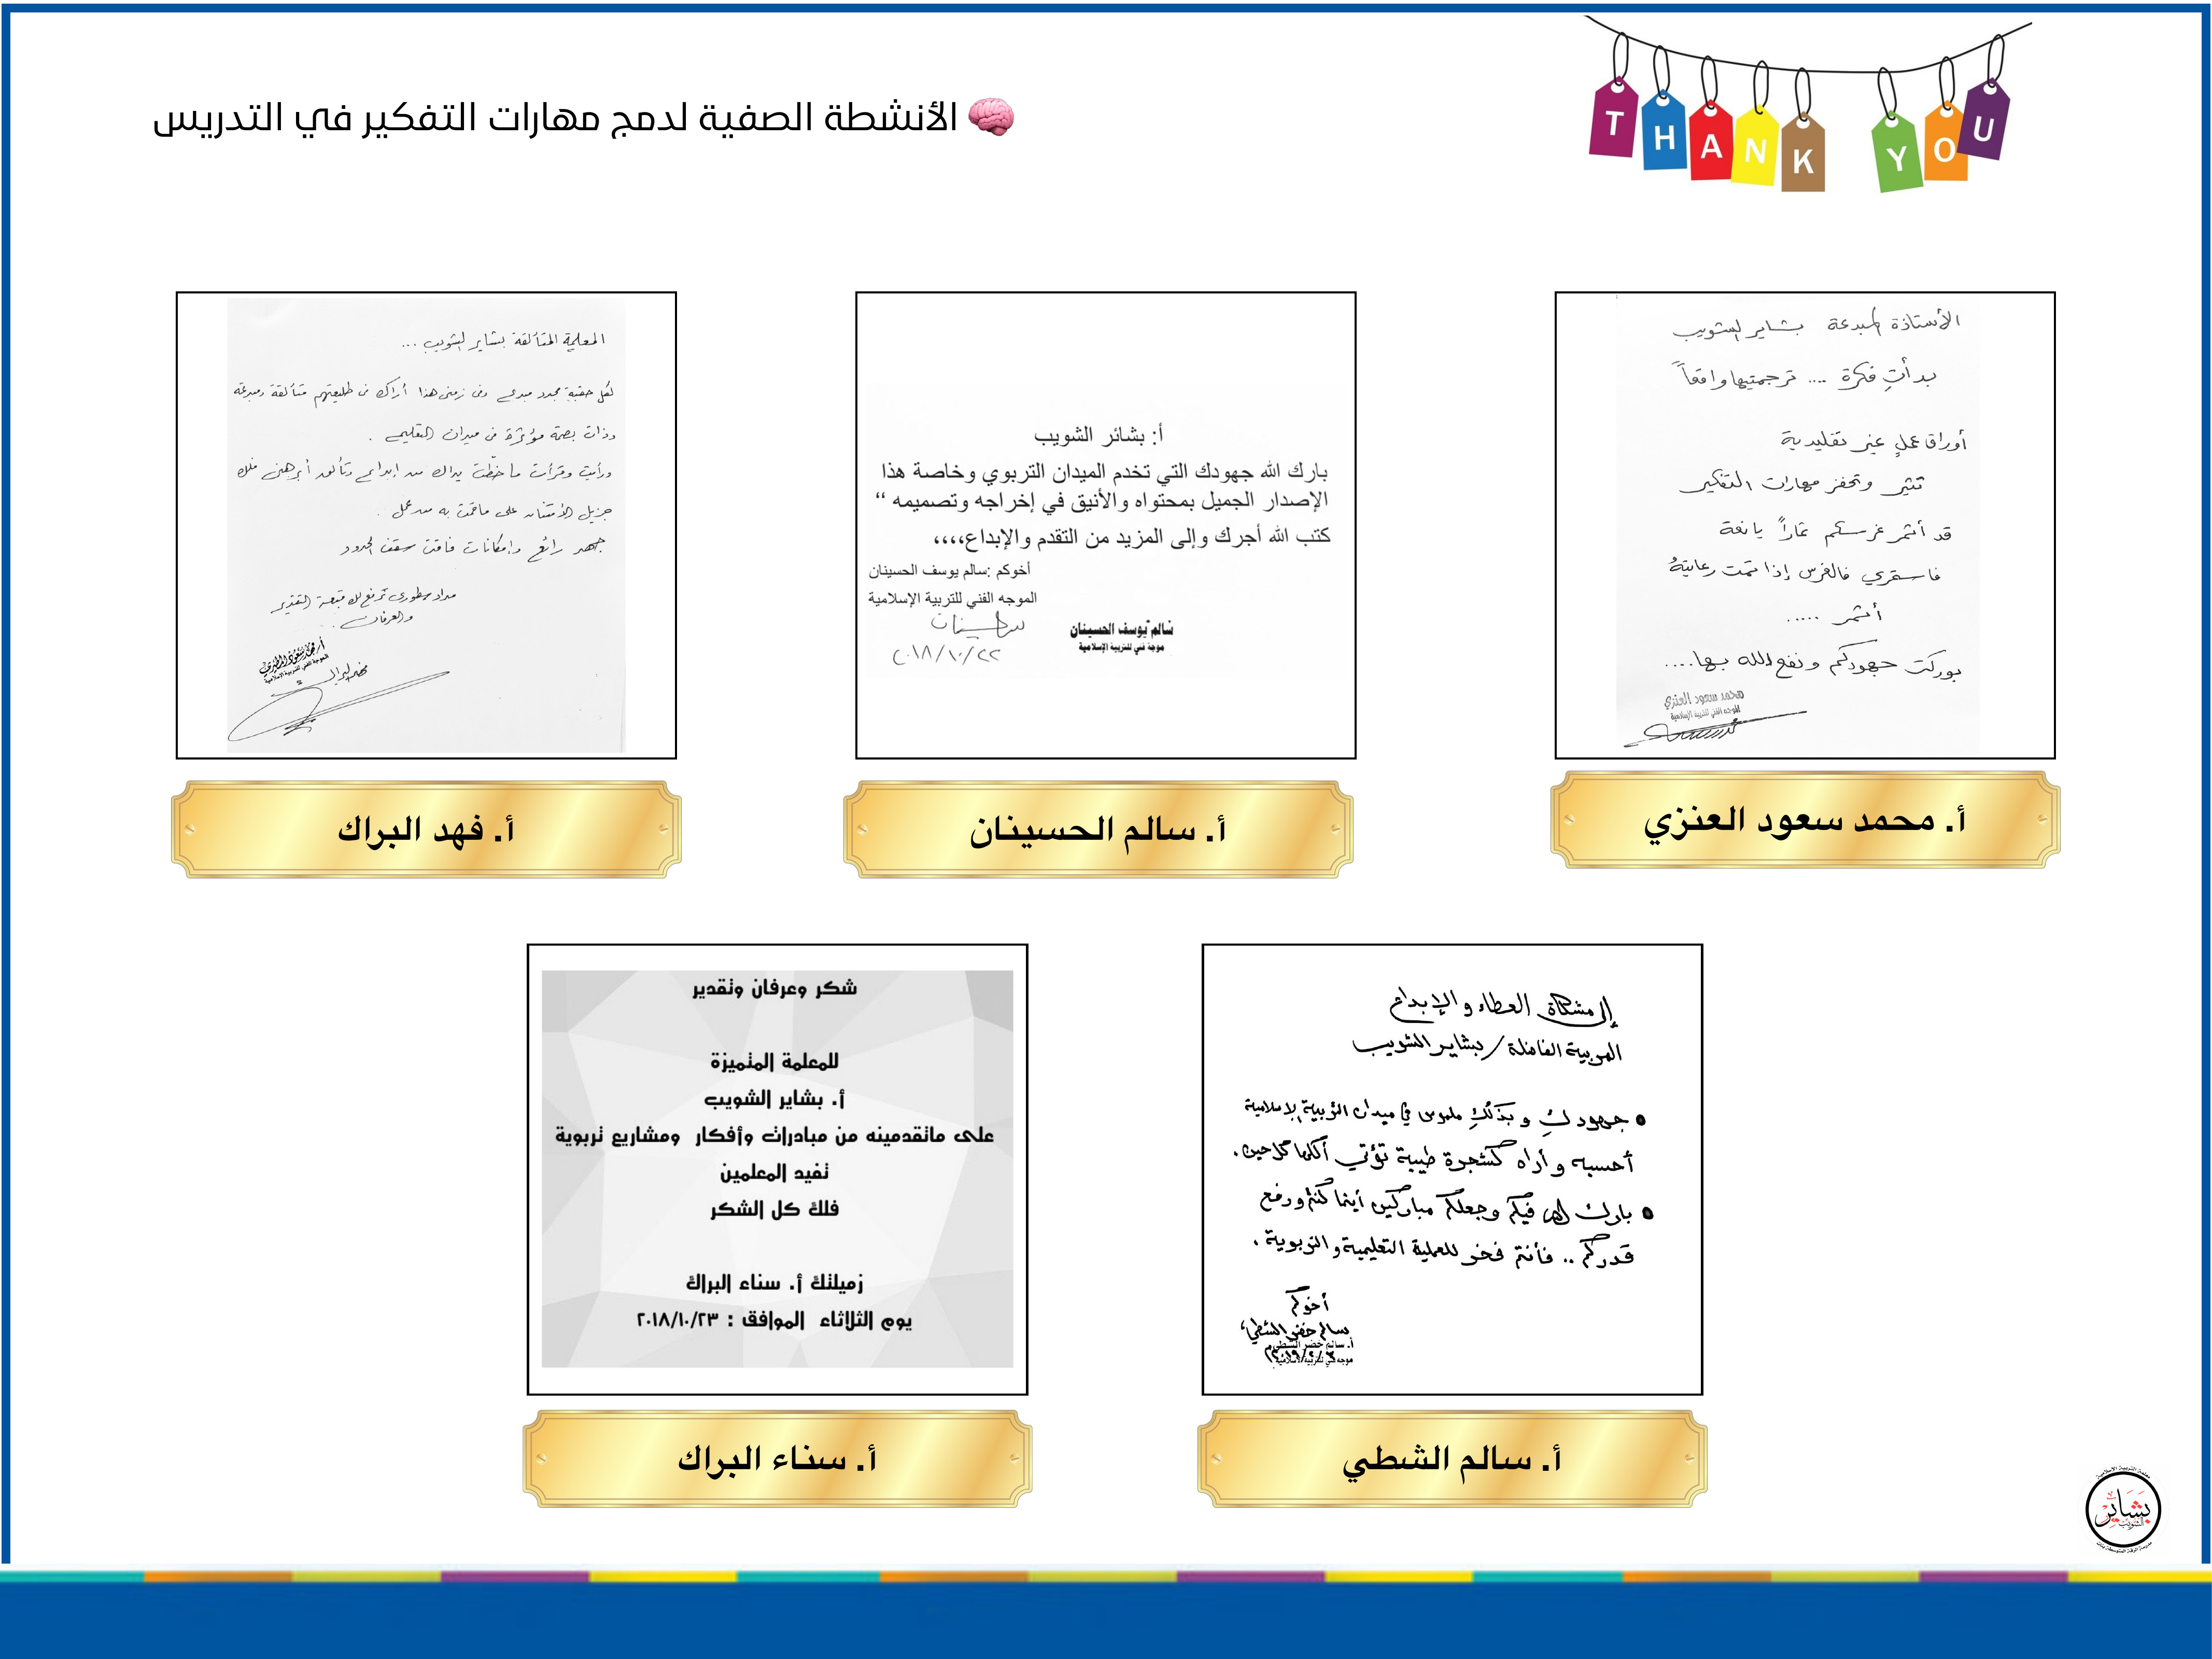 THANK YOU
الأنشطة الصفية لدمج مهارات التفكير في التدريس
الأستاذة المبدعة بشاير الشويب
بدأتِ فكرة .... ترجمتيها واقعاً
أوراق عملٍ غير تقليدية
تثير وتحفز مهارات التفكير
قد أثمر غرسكم ثماراً يانعة
فاستمري فالغرس إذا تمت رعايتهُ
أثمر .....
بوركت جهودكم ونفع الله بها....
محمد سعود العنزي
الموجه الفني للتربية الإسلامية
أ. محمد سعود العنزي
أ: بشائر الشويب
بارك الله جهودك التي تخدم الميدان التربوي وخاصة هذا
الإصدار الجميل بمحتواه والأنيق في إخراجه وتصميمه “
كتب الله أجرك وإلى المزيد من التقدم والإبداع،،،،
أخوكم :سالم يوسف الحسينان
الموجه الفني للتربية الإسلامية
سالم يوسف الحسينان
موجة فني للتربية الإسلامية
٢٠١٨/١٠/٢٢
أ. سالم الحسينان
المعلمة المتألقة بشاير الشويب ...
لكل حقبة مجدد مبدع وفي زمني هذا أراك في طليعتهم متألقة ومبدعة
وذات بصمة مؤثرة في ميدان التعليم .
ورأيت وقرأت ما خطّت يداك من إبداع وتألق أبرهني فلك
جزيل الامتنان على ما قمت به من عمل .
جهد رائع وإمكانات فاقت سقف الحدود
مداد سطوري ترفع لك قبعة التقدير
والعرفان ..
فهد البراك
أ. فهد البراك
إلى مشكاة العطاء والإبداع
المربية الفاضلة / بشاير الشويب
• جهودكِ وبذلكِ ملموس في ميدان التربية الإسلامية
أحسبه وأراه كشجرة طيبة تؤتي أكلها كل حين .
• بارك الله فيكم وجعلكم مباركين أينما كنتم ورفع
قدركم .. فأنتم فخر للعملية التعليمية والتربوية .
أخوكم
سالم خضر الشطي
أ. سالم خضر الشطي
موجه فني للتربية الإسلامية
أ. سالم الشطي
شكر وعرفان وتقدير
للمعلمة المتميزة
أ. بشاير الشويب
على ماتقدمينه من مبادرات وأفكار ومشاريع تربوية
تفيد المعلمين
فلك كل الشكر
زميلتك أ. سناء البراك
يوم الثلاثاء الموافق : ٢٠١٨/١٠/٢٣
أ. سناء البراك
معلمة التربية الإسلامية
بشاير
الشويب